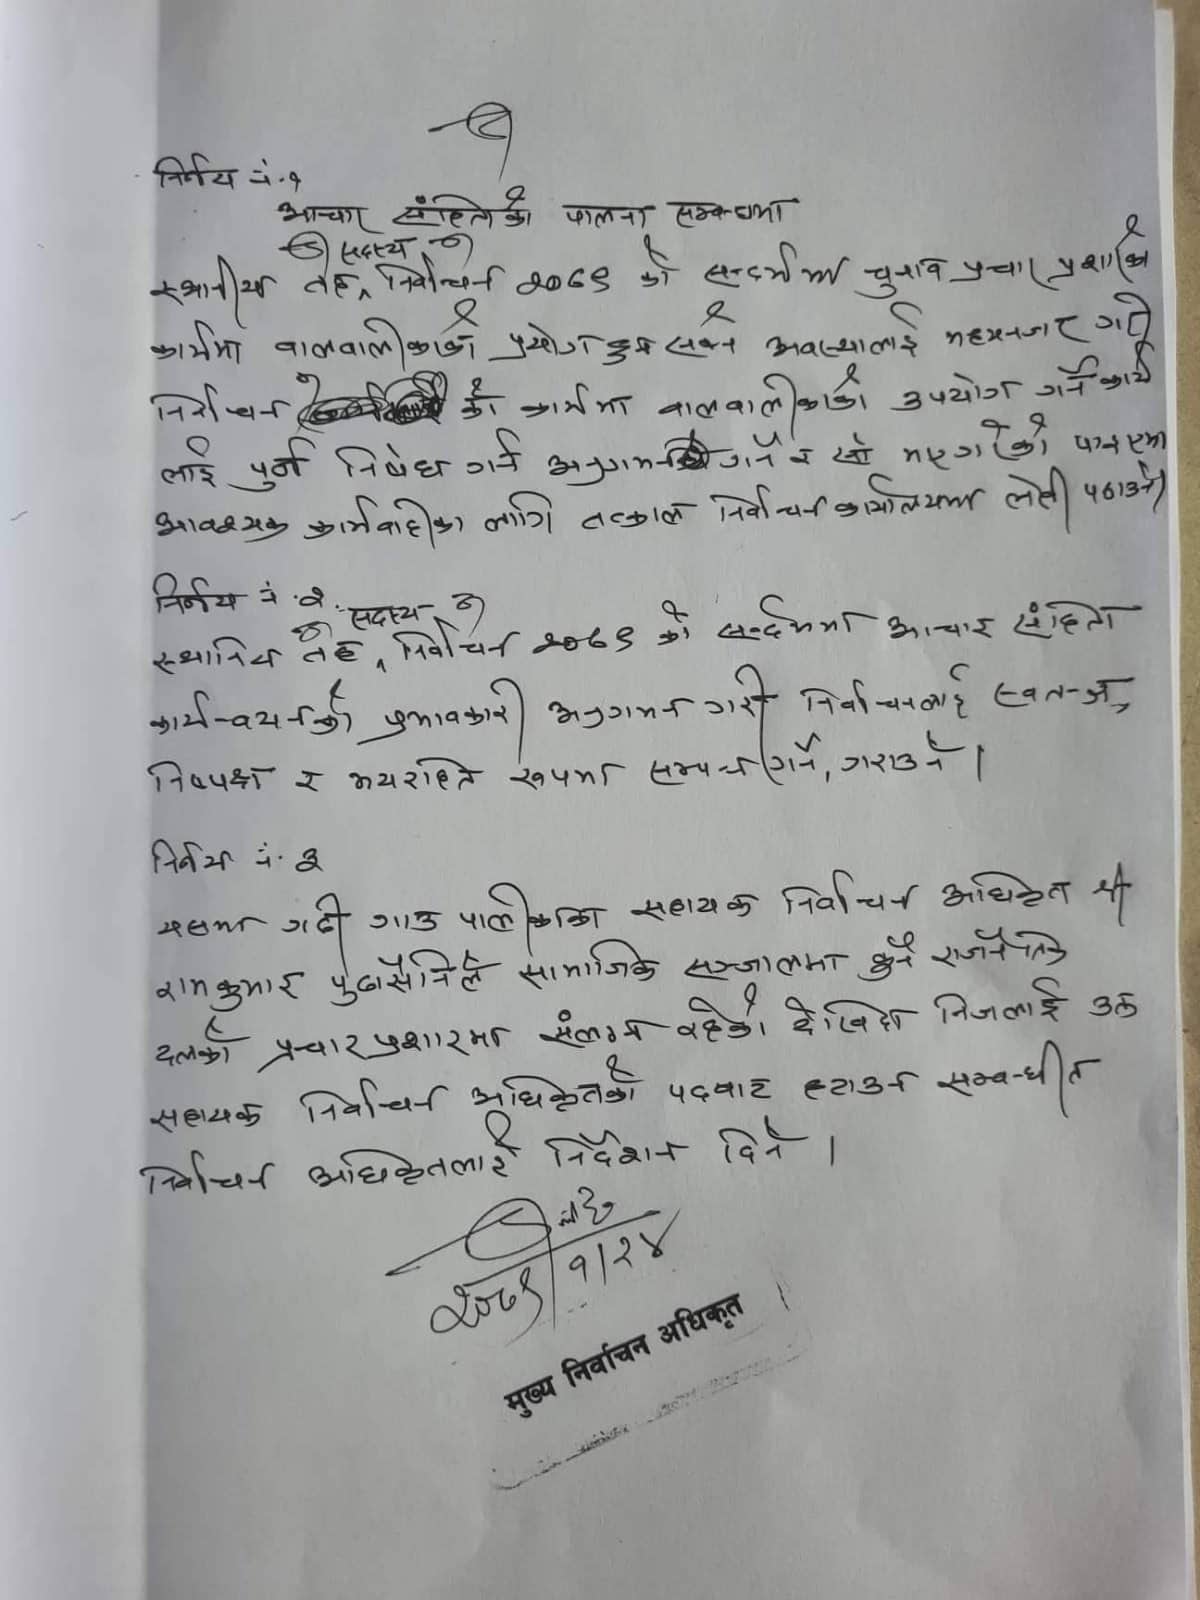 निर्णय नं.१
आचार संहिताको पालना सम्बन्धमा
सदस्य
स्थानीय तह निर्वाचन २०७९ को सन्दर्भमा चुनाव प्रचार प्रशारको
कार्यमा वालवालीकाको प्रयोग हुन सक्ने अवस्थालाई मध्यनजर गरी
निर्वाचन को कार्यमा वालवालीकाको उपयोग गर्ने कार्य
लाई पुर्ण निषेध गर्न अनुगमन गर्ने र सो भए गरेको पाइएमा
आवश्यक कार्यवाहीका लागि तत्काल निर्वाचन कार्यालयमा लेखी पठाउने
निर्णय नं.२.
सदस्य
स्थानिय तह निर्वाचन २०७९ को सन्दर्भमा आचार संहिता
कार्यन्वयनको प्रभावकारी अनुगमन गरी निर्वाचनलाई स्वतन्त्र,
निष्पक्ष र भयरहित रुपमा सम्पन्न गर्ने, गराउने ।
निर्णय नं. ३
यसमा गढी गाउ पालीकाका सहायक निर्वाचन अधिकृत श्री
रामकुमार पुडासैनिले सामाजिक सञ्जालमा कुनै राजनैतिक
दलको प्रचार प्रशारमा संलग्न रहेको देखिदा निजलाई उक्त
सहायक निर्वाचन अधिकृतको पदवाट हटाउन सम्बन्धीत
निर्वाचन अधिकृतलाई निर्देशन दिने ।
२०७९/१/२४
मुख्य निर्वाचन अधिकृत